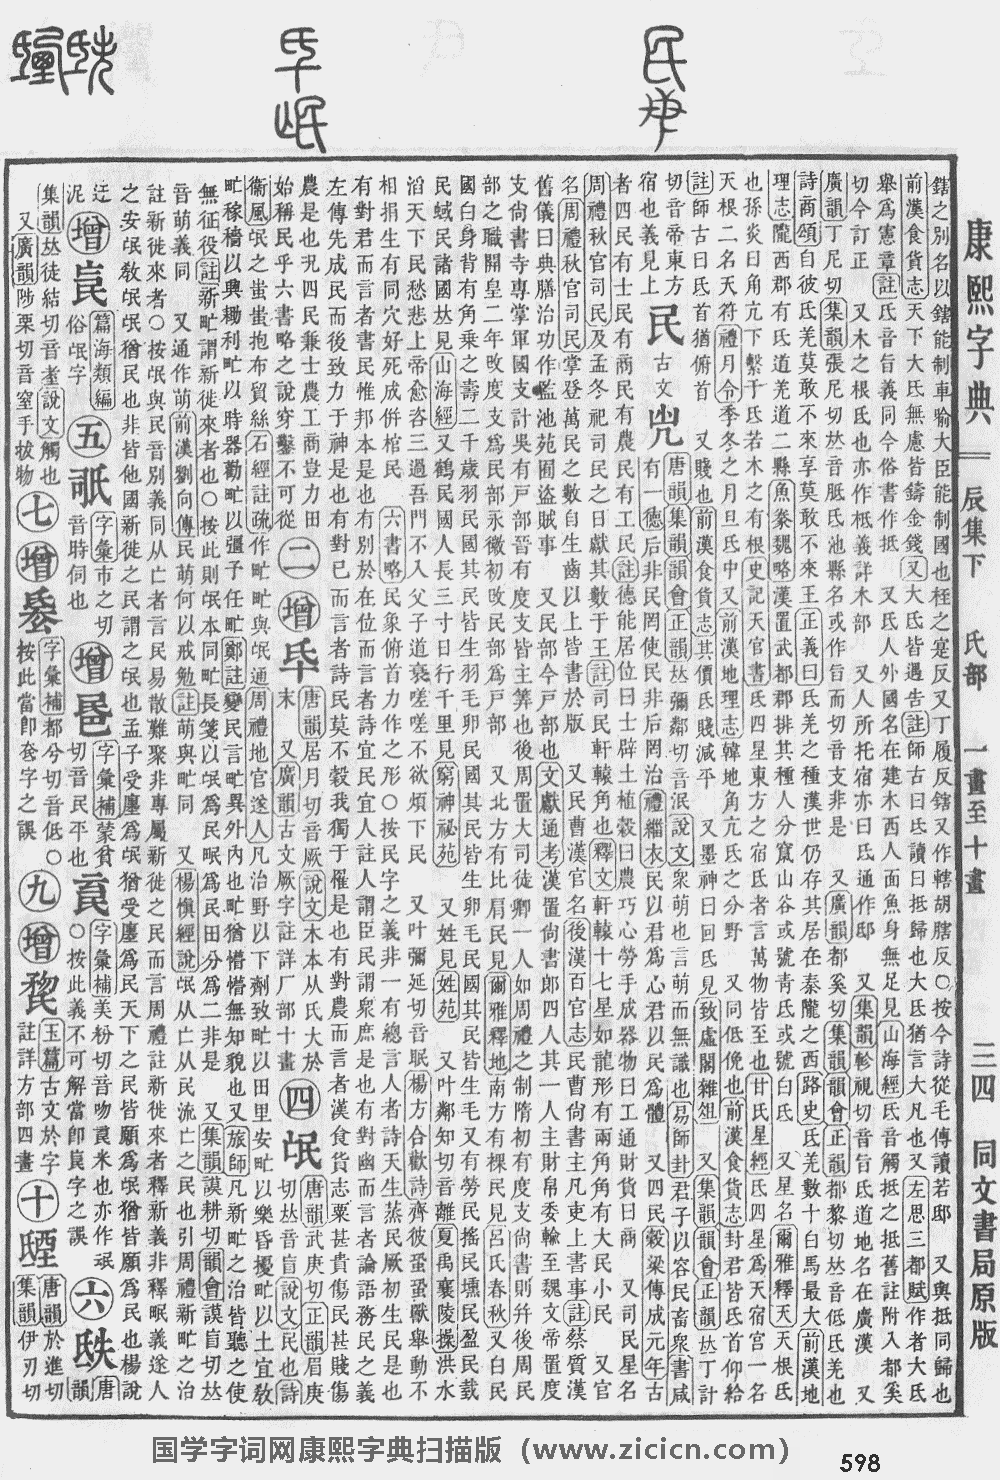 康熙字典 辰集下 氏部 一畫至十畫 三四 同文書局原版
鎋之別名以鎋能制車喻大臣能制國也枉之寔反又丁履反鎋又作轄胡瞎反○按今詩從毛傳讀若邸 又與抵同歸也
前漢食貨志天下大氐無慮皆鑄金錢又大氐皆遇告註師古曰氐讀曰抵歸也大氐猶言大凡也又左思三都賦作者大氐
舉爲憲章註氐音旨義同今俗書作抵 又氐人外國名在建木西人面魚身無足見山海經氐音觸抵之抵舊註附入都奚
切今訂正 又木之根氐也亦作柢義詳木部 又人所托宿亦曰氐通作邸 又集韻軫視切音旨氐道地名在廣漢 又
廣韻丁尼切集韻張尼切𠀤音胝氐池縣名或作旨而切音支非是 又廣韻都奚切集韻韻會正韻都黎切𠀤音低氐羌也
詩商頌自彼氐羌莫敢不來享莫敢不來王正義曰氐羌之種漢世仍存其居在秦隴之西路史氐羌數十白馬最大前漢地
理志隴西郡有氐道羌道二縣魚豢魏略漢置武都郡排其種人分竄山谷或號靑氐或號白氐 又星名爾雅釋天天根氐
也孫炎曰角亢下繫于氐若木之有根史記天官書氐四星東方之宿氐者言萬物皆至也甘氏星經氐四星爲天宿宮一名
天根二名天符禮月令季冬之月旦氐中又前漢地理志韓地角亢氐之分野 又同低俛也前漢食貨志封君皆氐首仰給
註師古曰氐首猶俯首 又賤也前漢食貨志其價氐賤減平 又墨神曰回氐見致虛閣雜俎 又集韻韻會正韻𠀤丁計
切音帝東方宿也義見上
民 古文𠘽 有一德后非民罔使民非后罔治禮緇衣民以君爲心君以民爲體 又四民穀梁傳成元年古
唐韻集韻韻會正韻𠀤彌鄰切音泯說文眾萌也言萌而無識也易師封君子以容民畜衆書咸
者四民有士民有商民有農民有工民註德能居位曰士辟土植穀曰農巧心勞手成器物曰工通財貨曰商 又司民星名
周禮秋官司民及孟冬祀司民之日獻其數于王註司民軒轅角也釋文軒轅十七星如龍形有兩角角有大民小民 又官
名周禮秋官司民掌登萬民之數自生齒以上皆書於版 又民曹漢官名後漢百官志民曹尙書主凡吏上書事註蔡質漢
舊儀曰典膳治功作監池苑囿盜賊事 又民部今戸部也文獻通考漢置尙書郎四人其一人主財帛委輸至魏文帝置度
支尙書寺專掌軍國支計吳有戸部晉有度支皆主筭也後周置大司徒卿一人如周禮之制隋初有度支尙書則幷後周民
部之職開皇二年改度支爲民部永徽初改民部爲戸部 又北方有比肩民見爾雅釋地南方有裸民見呂氏春秋又白民
國白身背有角乘之壽二千歲羽民國其民皆生羽毛卵民國其民皆生卵 又毛民又有勞民搖民壎民盈民蜮
民蜮民諸國𠀤見山海經又鶴民國人長三寸日行千里見窮神祕苑 又姓見姓苑 又叶鄰知切音離夏禹襄陵操洪水
滔天下民愁悲上帝愈咨三過吾門不入父子道衰嗟嗟不欲煩下民 又叶彌延切音眠楊方合歡詩齊彼蛩蛩獸舉動不
相捐生有同穴好死成併棺民 六書略民象俯首力作之形○按民字之義非一有總言人者詩天生蒸民厥初生民是也
有對君而言者書民惟邦本是也有別於在位而言者詩宜民宜人註人謂臣民謂衆庶是也有對幽而言者論語務民之義
左傳先成民而後致力于神是也有對已而言者詩民莫不穀我獨于罹是也有對農而言者漢食貨志粟甚貴傷民甚賤傷
農是也況四民兼士農工商豈力田
始稱民乎六書略之說穿鑿不可從
二 增 氒
唐韻居月切音厥說文木本从氏大於末 又廣韻古文厥字註詳厂部十畫
四 氓
唐韻武庚切正韻眉庚
切𠀤音盲說文民也詩
衞風氓之蚩蚩抱布貿絲石經註疏作甿甿與氓通周禮地官遂人凡治野以下劑致甿以田里安甿以樂昏擾甿以土宜敎
甿稼穡以興耡利甿以時器勸甿以彊予任甿鄭註變民言甿異外內也甿猶懵懵無知貌也又旅師凡新甿之治皆聽之使
無征役註新甿謂新徙來者也○按此則氓本同甿長箋以氓爲民甿爲民田分爲二非是 又集韻謨耕切韻會謨盲切𠀤
音萌義同 又通作萌前漢劉向傳民萌何以戒勉註萌與甿同 又楊愼經說氓从亡从民流亡之民也引周禮新甿之治
註新徙來者○按氓與民音別義同从亡者言民易散難聚非專屬新徙之民而言周禮註新徙來者釋新義非釋甿義遂人
之安氓敎氓猶民也非皆他國新徙之民謂之氓也孟子受廛爲氓猶受廛爲民天下之民皆願爲氓猶皆願爲民也楊說
迂泥
增 㞶 篇海類編俗氓字
五 䟗 字彙市之切音時伺也
增 㲳 字彙補蒙貧切音民平也
㲴 字彙補美粉切音吻㲴米也亦作泯○按此義不可解當卽㞶字之譌
六 䟕 唐韻
集韻𠀤徒結切音耊說文觸也
又廣韻陟栗切音窒手拔物
七 增 字彙補都兮切音低○按此當卽㲃字之譌
九 增 玉篇古文於字註詳方部四畫
十 㲄 唐韻於進切集韻伊刃切
国学字词网康熙字典扫描版（www.zicicn.com）
598